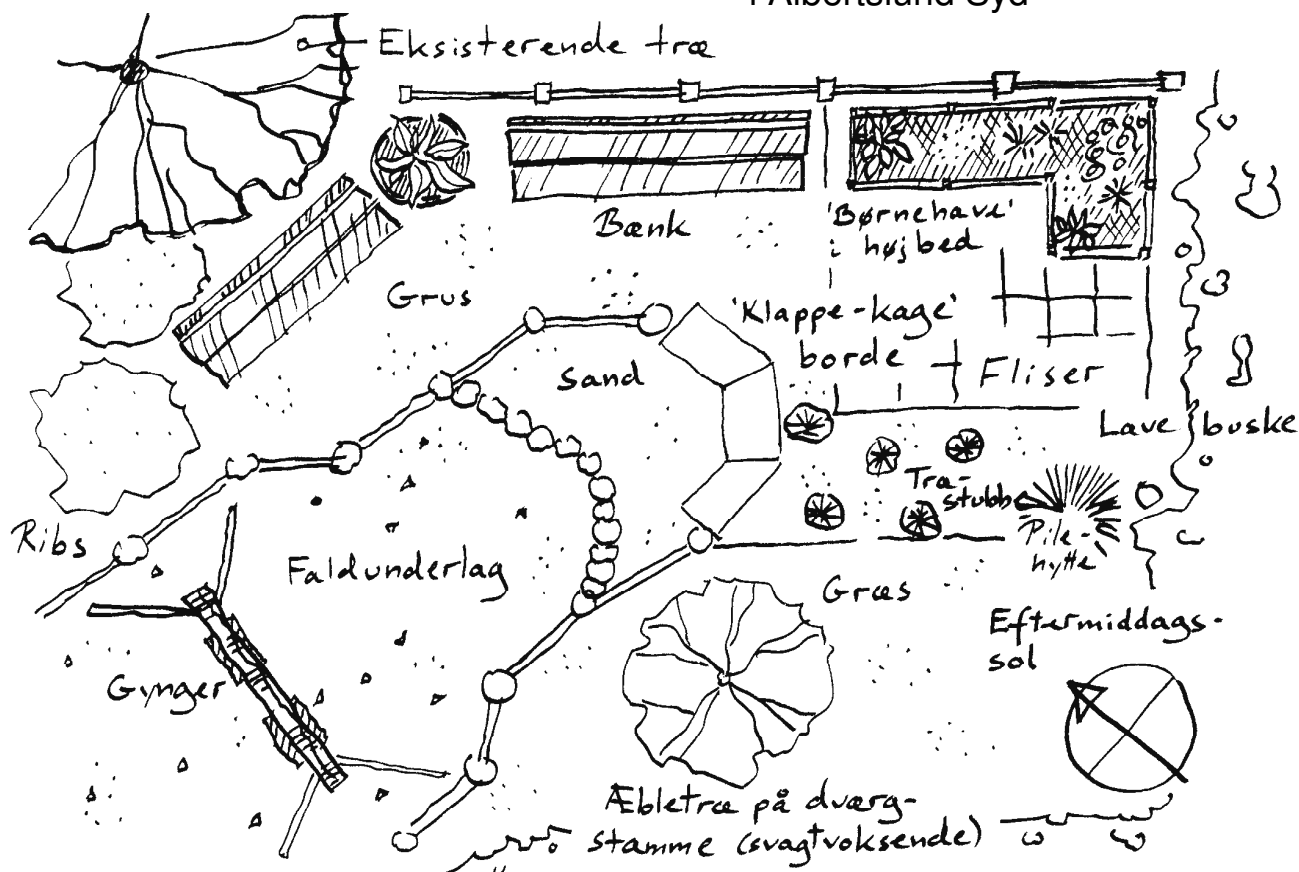 i Albertslund Syd
Eksisterende træ
Bænk
'Børnehave'
i højbed
Grus
'Klappe-kage'
borde
Sand
Fliser
Lave buske
Træ-
stubbe
Pile-
hytte
Ribs
Faldunderlag
Græs
Eftermiddags-
sol
Gynger
Æbletræ på dværg-
stamme (svagtvoksende)